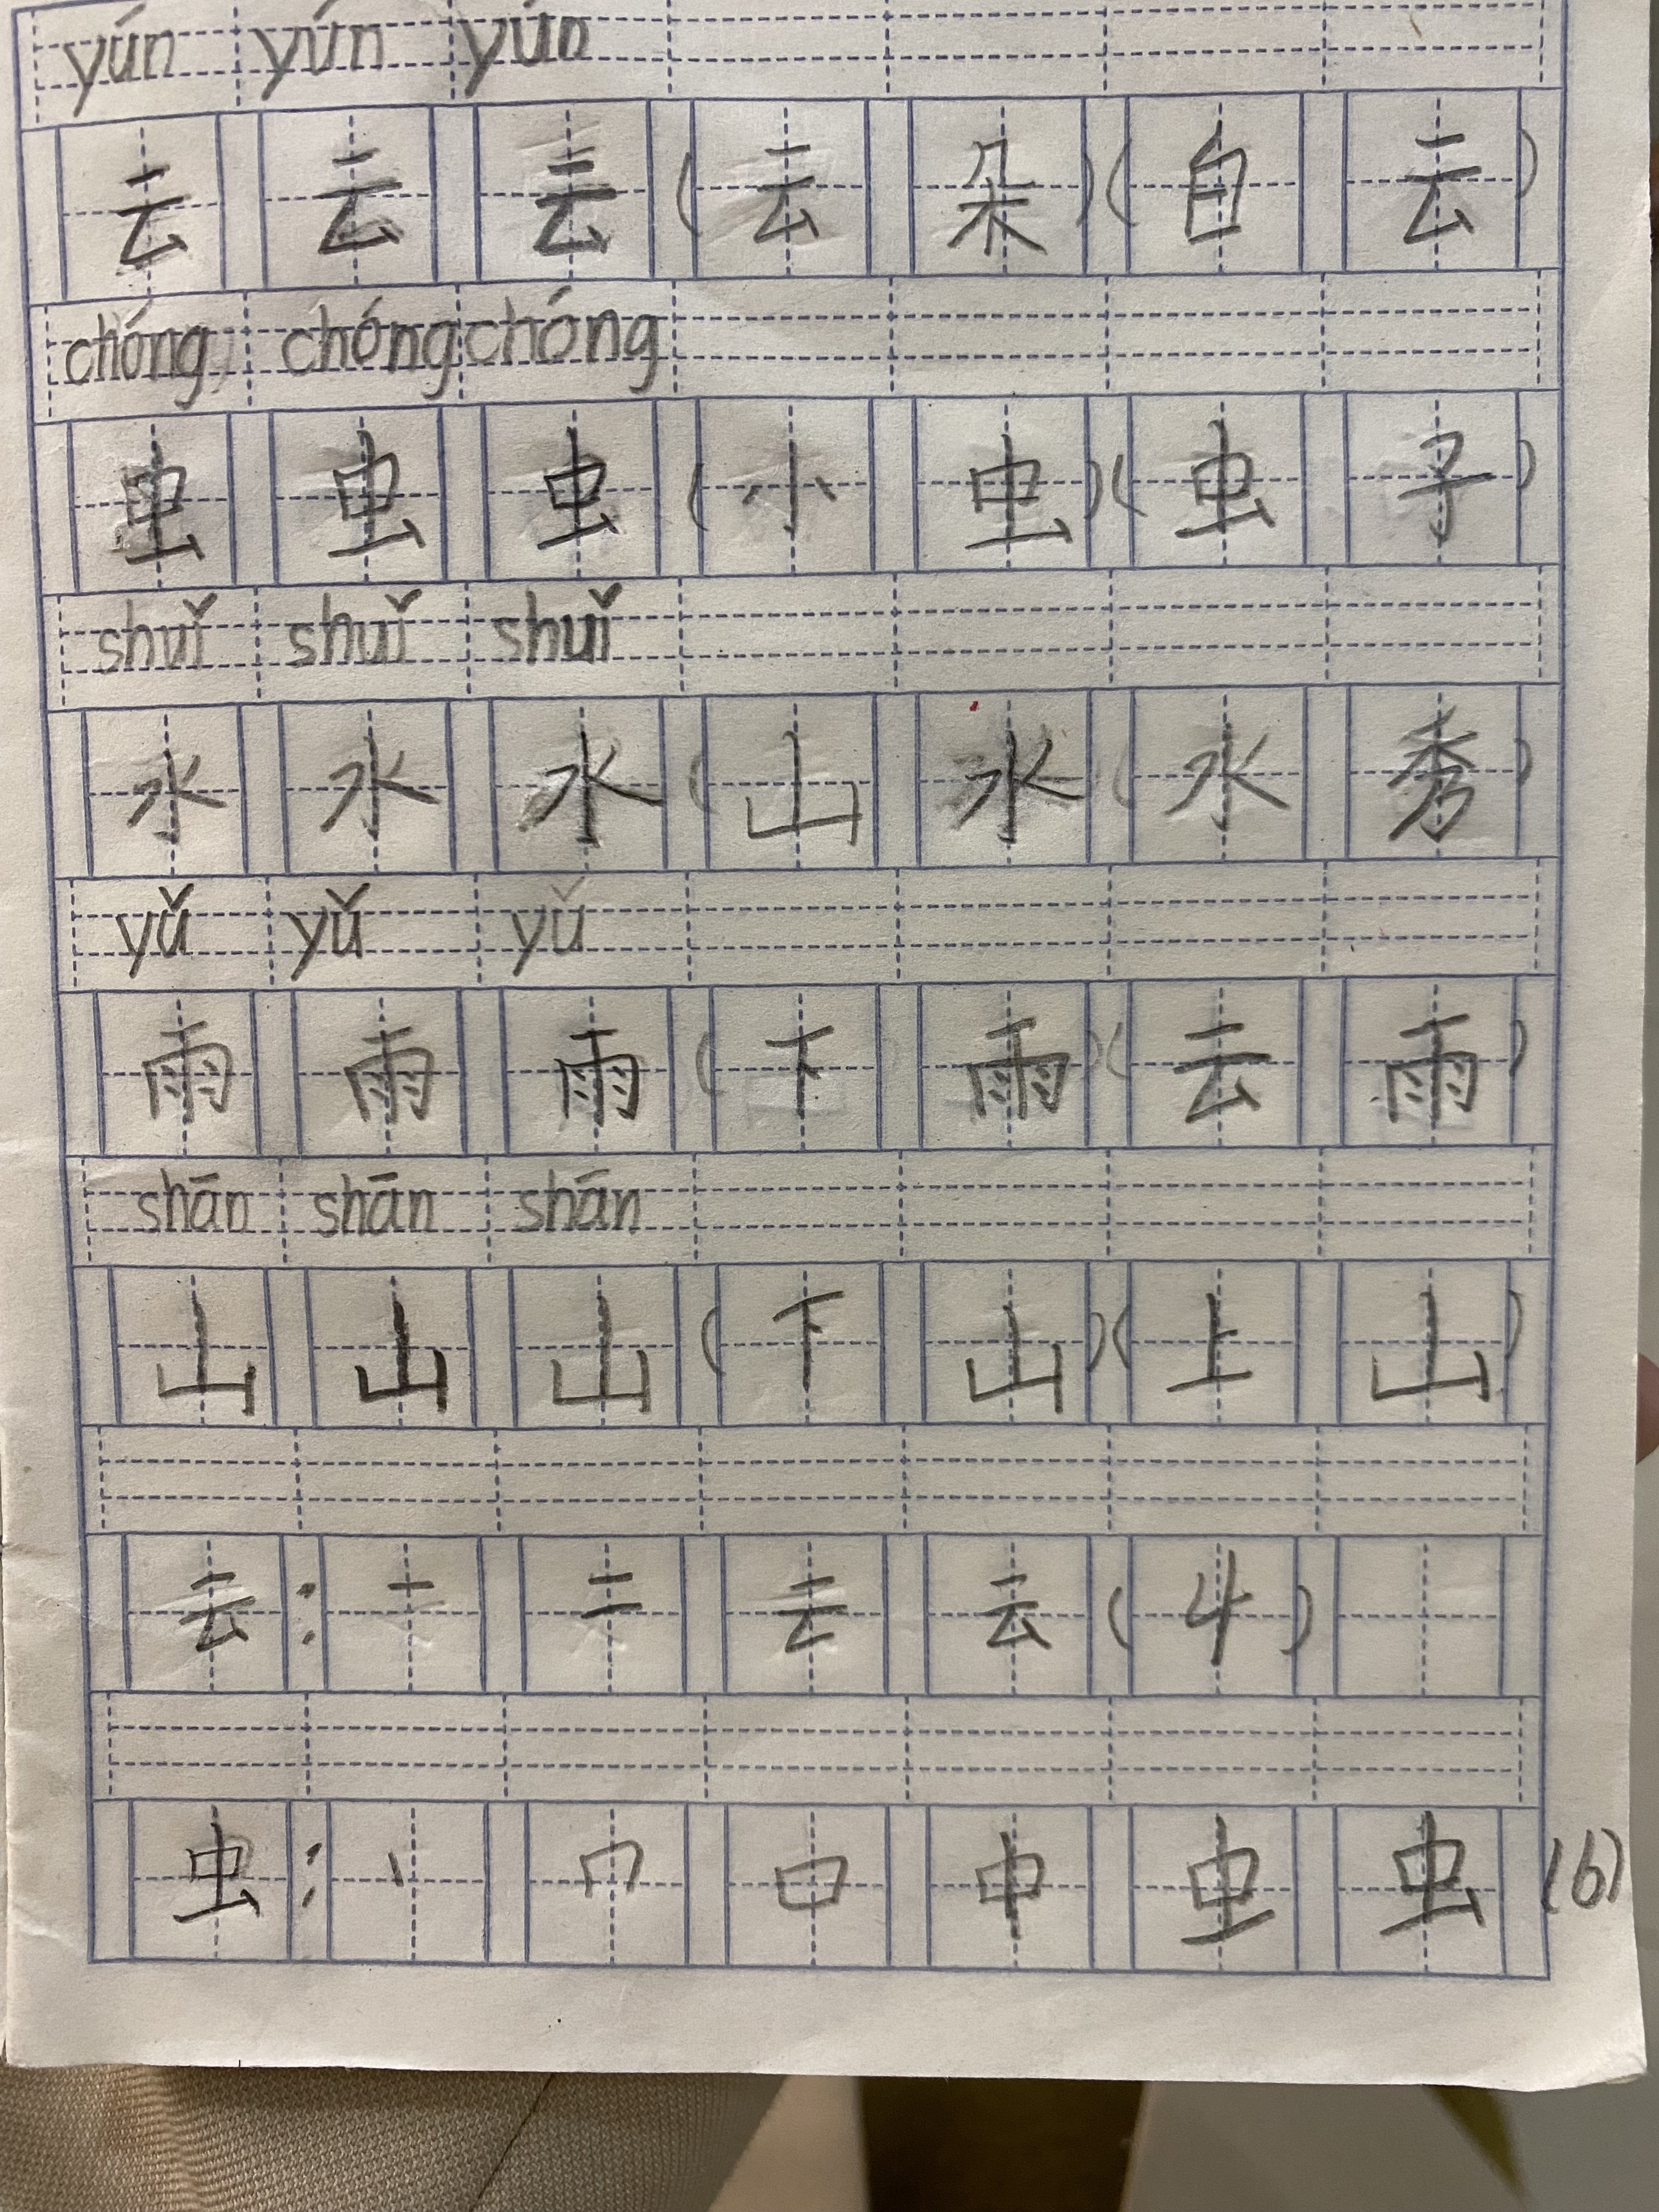 yún yún yún
云 云 云 (云 朵)(白 云)
chóng chóng chóng
虫 虫 虫 (小 虫)(虫 子)
shuǐ shuǐ shuǐ
水 水 水 (山 水 (水 秀)
yǔ yǔ yǔ
雨 雨 雨 (下 雨)(云 雨)
shān shān shān
山 山 山 (下 山)(上 山)
云: 一 二 云 云 (4)
虫: 丨 冂 口 中 虫 虫 (6)